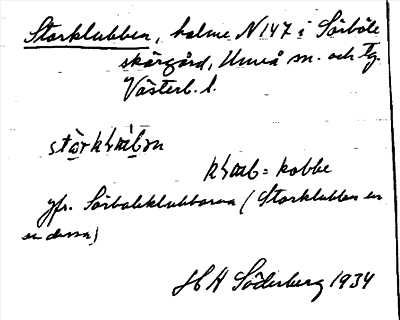 Storklubben, holme N 147 i Sörböle
skärgård, Umeå sn. och tg.
Västerb. l.
kobbe
jfr. Sörböleklubbarna (Storklubben en
av dessa)
H A Söderberg 1934